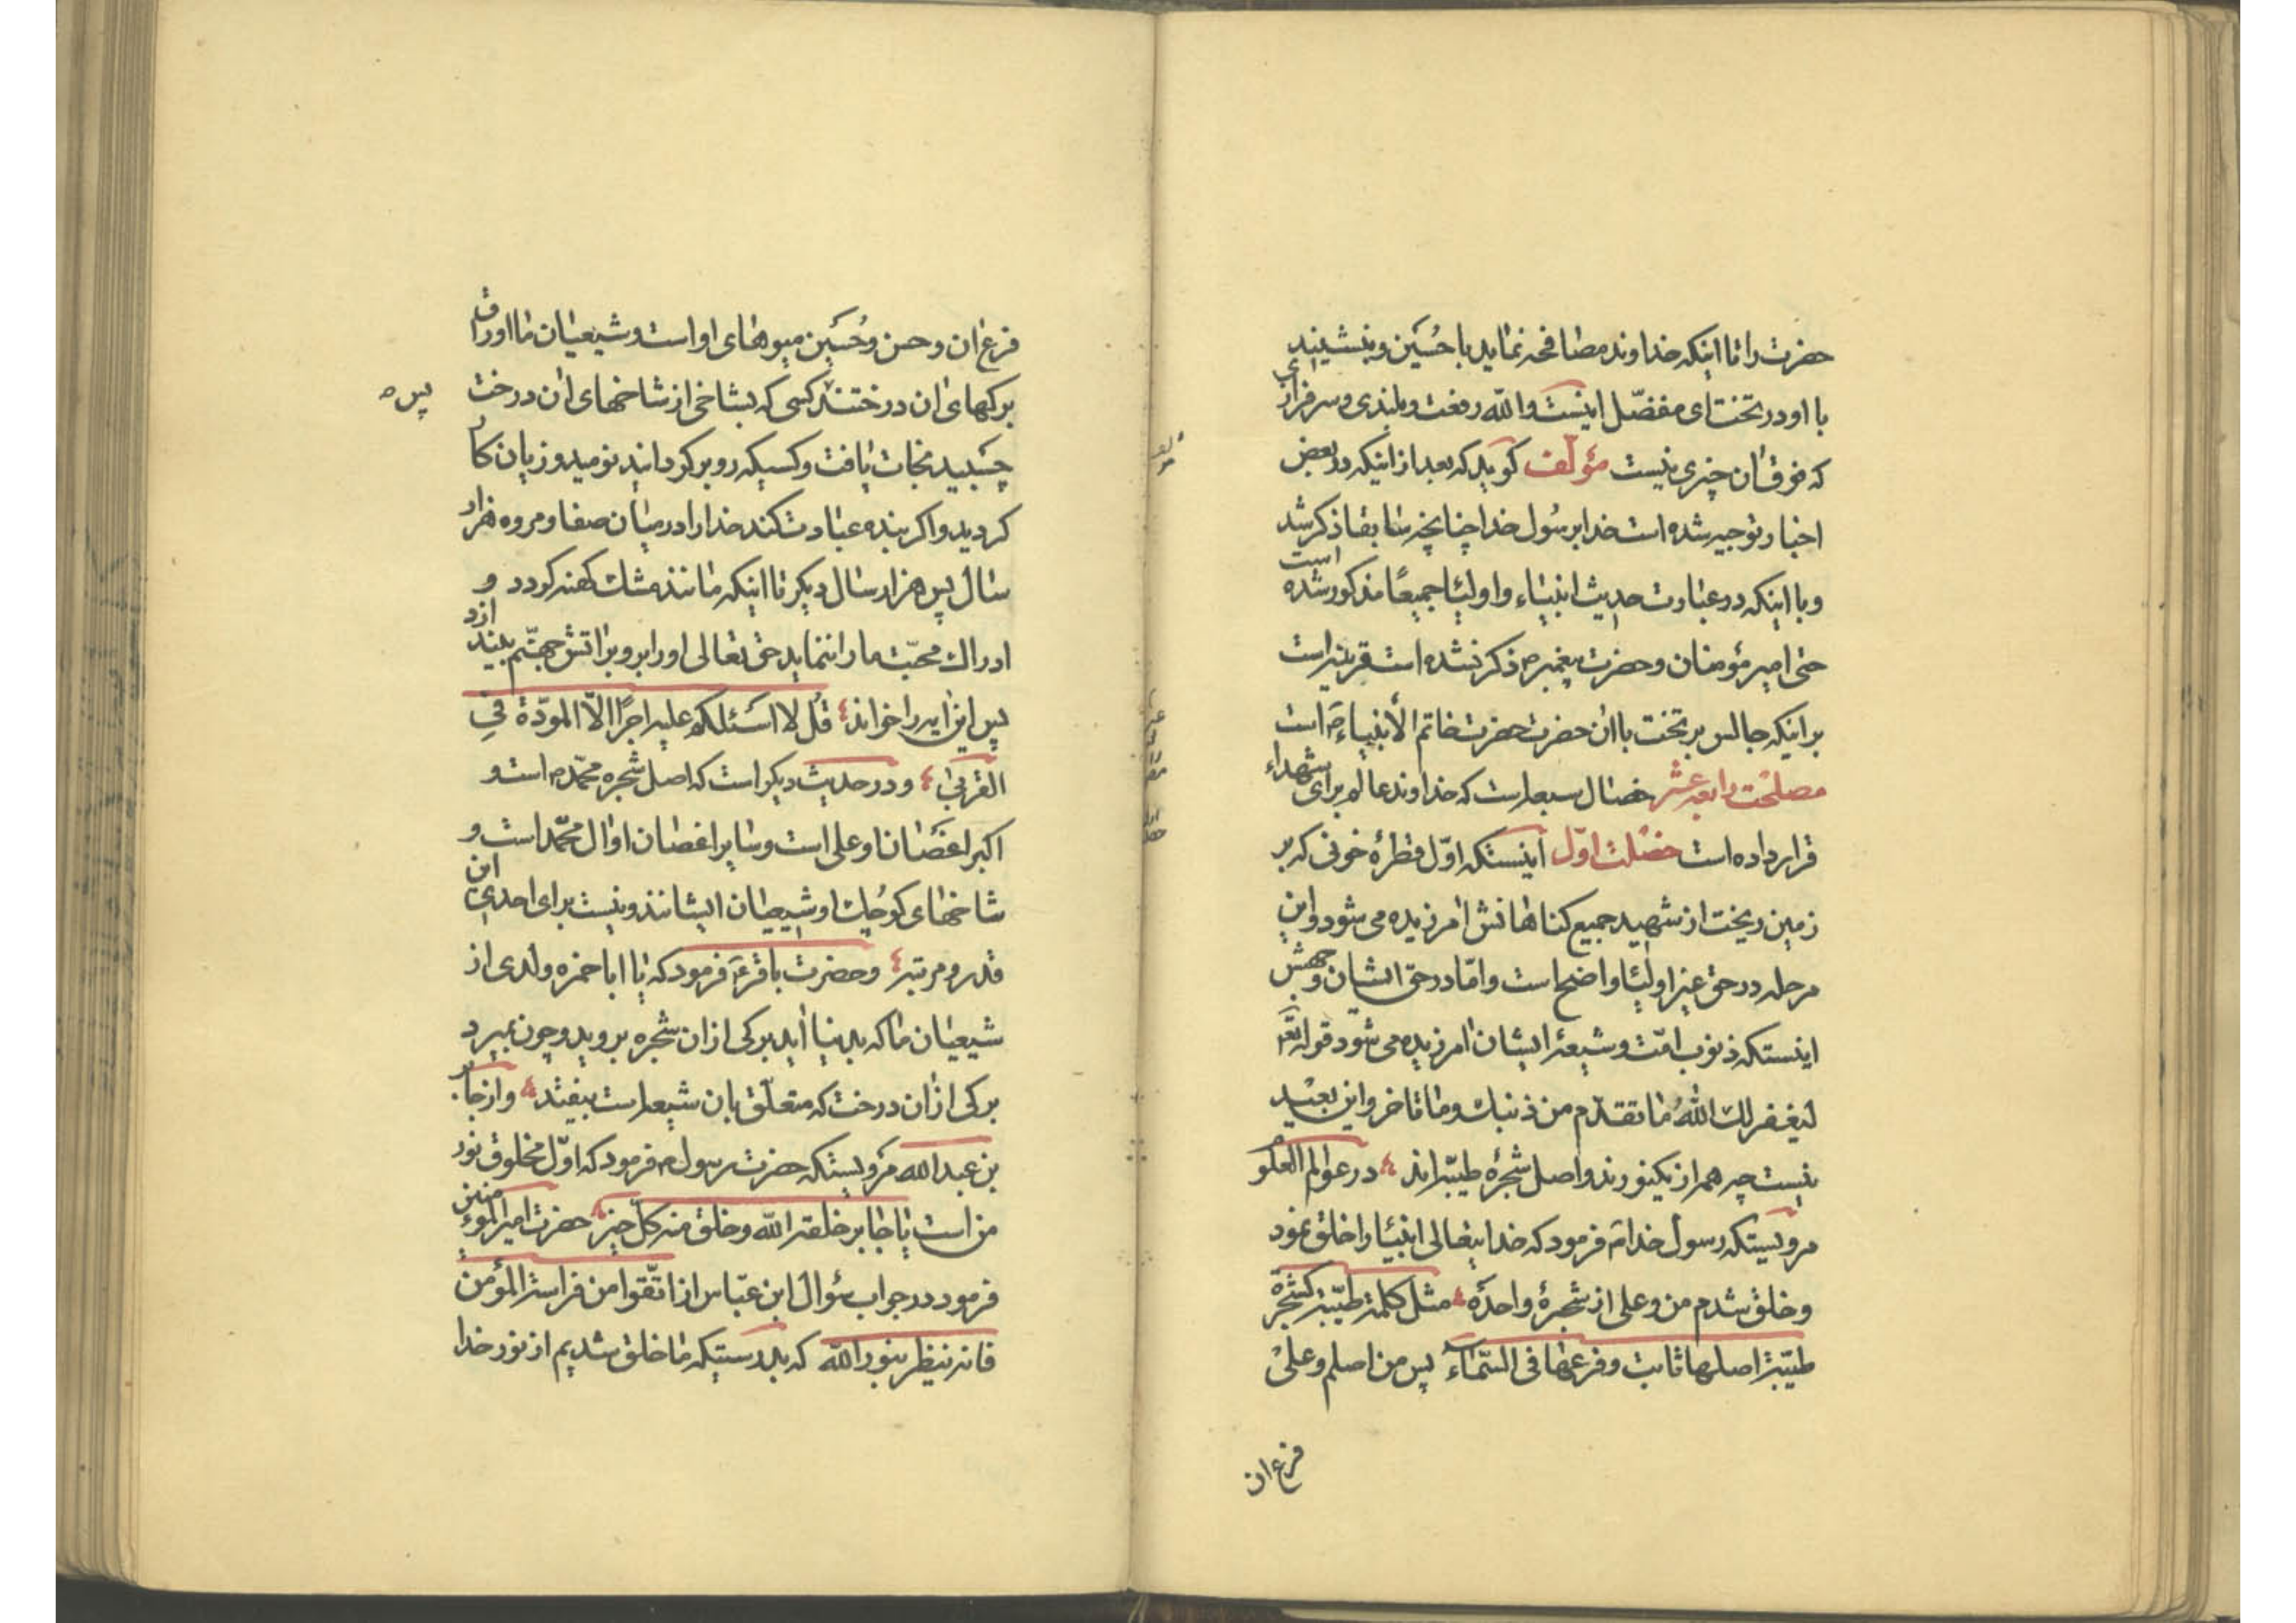 حضرت را تا اینکه خداوند مصافحه نماید با حُسَین و بنشینند
با او در تخت ای مفضّل اینست والله رفعت و بلندی و سرفرازی
که فوق ان چیزی نیست مؤلّف کوید که بعد از اینکه در بعض
اخبار توجیه شده است خدا برسُول خدا چنانچه سٰابقا ذکر شد
و با اینکه در عبارت حدیث انبیٰاء و اولیٰا جمیعًا مذکور شده است
حتی امیر مؤمنان و حضرت پیغمبر ص ذکر نشده است قرینه است
بر اینکه جالس بر تخت با ان حضرت حضرت خاتم الأنبیاء ص است
مصلحت رابعه عشر خصٰال سبعه است که خداوند عالم برای شهداء
قرار داده است خصلت اوّل اینستکه اوّل قطرهٔ خونی که بر
زمین ریخت از شهید جمیع کناهانش امرزیده می شود و این
مرحله در حق غیر اولیٰا واضح است و امّا در حقّ ایشان وجهش
اینستکه ذنوب امّت و شیعهٔ ایشان امرزیده می شود قوله تعٰ
لیغفر لك اللهُ مٰا تقدّم من ذنبك و مٰا تاخر و این بعید
نیست چه همه از یکنورند و اصل شجرهٔ طیّبه اند در عوالم العلوم
مرویستکه رسول خدا ص فرمود که خدایتعالی انبیٰا را خلق نمود
و خلق شدم من و علی از شجرهٔ واحدَه مثل کلمة طیّبة کشجرَة
طیّبة اصلها ثابت و فرعها فی السّمٰاء پس من اصلم و علیْ
فرع ان
فرع ان و حسن و حُسَین میوهٰای او است و شیعیٰان مٰا اوراق
برکهای ان درختند کسی که بشاخی از شاخهای ان درخت
پس ه
چسبید نجات یٰافت و کسیکه رو برکرداند نومید و زیان کار
کردید و اکر بنده عبٰادت کند خدا را در میٰان صفا و مروه هزار
سٰال پس هزار سٰال دیکر تا اینکه مٰانند مشك کهنه کردد و
ادراك محبّت ما را ننماید حق تعالی او را برو بر اتش جهنّم بیندازد
پس این ایه را خواند قُل لا اسَئلکم علیه اجرًا الاّ المودّة فی
القربیٰ و در حدیث دیکر است که اصل شجره محمّد ص است و
اکبر اغصٰان او علی است و سٰایر اغصٰان او ال محمّد است و
شاخهای کوچك او شیعیٰان ایشانند و نیست برای احدی این
قدر و مرتبه و حضرت باقرع فرمود که یٰا ابا حمزه ولدی از
شیعیٰان مٰا که بدنیا اید برکی از ان شجره بروید و چون بمیرد
برکی از ان درخت که متعلّق بان شیعه است بیفتد و از جٰابر
بن عبدالله مرویستکه حضرت رسول ص فرمود که اوّل مخلوق نور
من است یٰا جٰابر خلقه الله و خلق منه کلّ خیر حضرت امیر المؤمنین
فرمود در جواب سؤال ابن عبّاس از اتّقوا من فراسة المؤمن
فانه ینظر بنور الله که بدرستیکه مٰا خلق شدیم از نور خدا